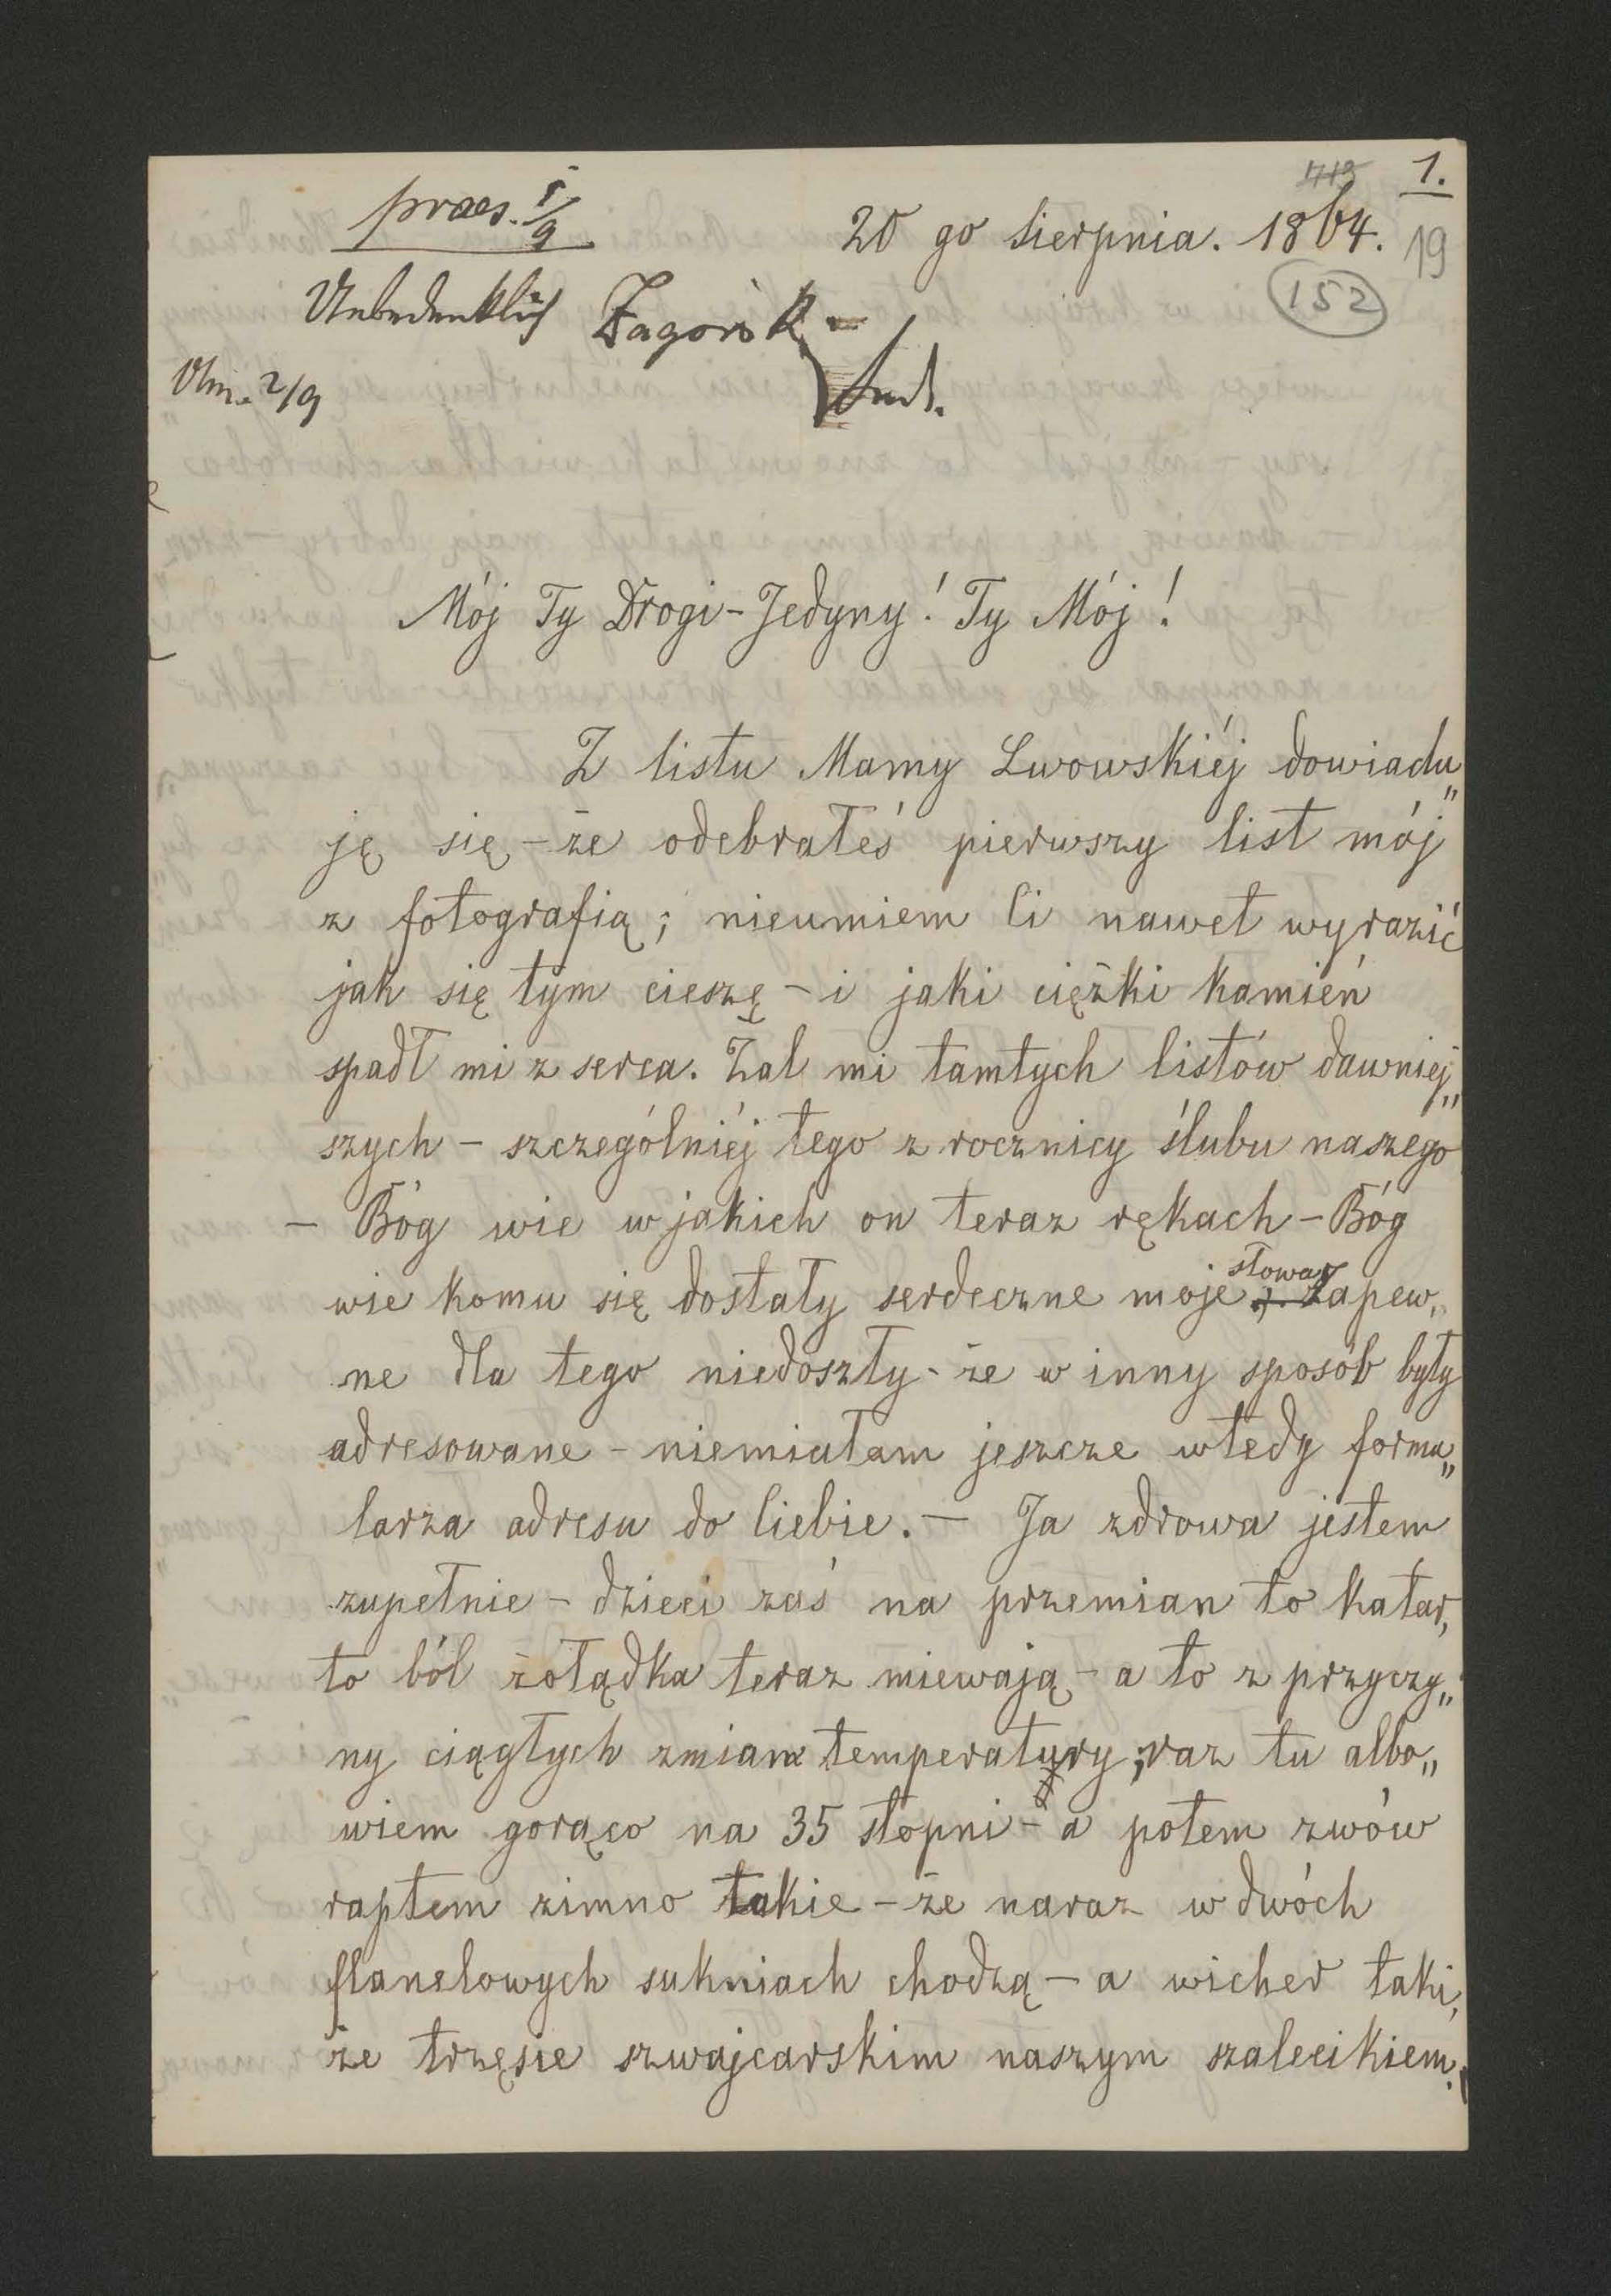 1.
praes. 1/9
20 go Sierpnia. 1864.
19
152
Unbedenklich Zagórsk
2/9
Mój Ty Drogi-Jedyny! Ty Mój!
Z listu Mamy Lwowskiéj dowiadu„
ję się - że odebrałeś pierwszy list mój
z fotografią; nieumiem Ci nawet wyrazić
jak się tym cieszę - i jaki ciężki kamień
spadł mi z serca. Żal mi tamtych listów dawniej„
szych - szczególniéj tego z rocznicy ślubu naszego
- Bóg wie w jakich on teraz rękach - Bóg
wie komu się dostały serdeczne moje słowa, zapew„
ne dla tego niedoszły - że w inny sposób były
adresowane - niemiałam jeszcze wtedy formu„
larza adresu do Ciebie. - Ja zdrowa jestem
zupełnie - dzieci zaś na przemian to katar,
to ból żołądka teraz miewają - a to z przyczy„
ny ciągłych zmian temperatury; raz tu albo„
wiem gorąco na 35 stopni - a potem zwów
raptem zimno takie - że naraz w dwóch
flanelowych sukniach chodzą - a wicher taki,
że trzęsie szwajcarskim naszym szalecikiem.